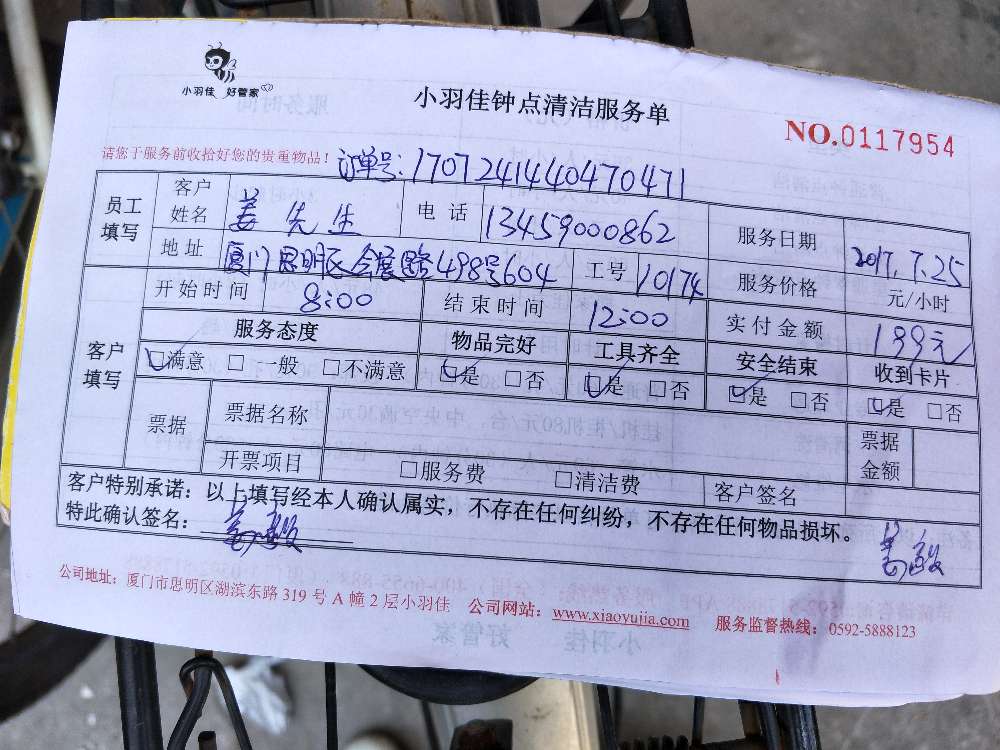 小羽佳 好管家
小羽佳钟点清洁服务单
NO.0117954
请您于服务前收拾好您的贵重物品！ 订单号：1707241440470471
员工填写 客户姓名 姜先生 电话 13459000862 服务日期 2017.7.25
地址 厦门思明区会展路498号604 工号 10174 服务价格 元/小时
客户填写 开始时间 8:00 结束时间 12:00 实付金额 199元
服务态度 物品完好 工具齐全 安全结束 收到卡片
☑满意 □一般 □不满意 ☑是 □否 ☑是 □否 ☑是 □否 ☑是 □否
票据 票据名称 票据金额
开票项目 □服务费 □清洁费 客户签名
客户特别承诺：以上填写经本人确认属实，不存在任何纠纷，不存在任何物品损坏。
特此确认签名：
公司地址：厦门市思明区湖滨东路 319 号 A 幢 2 层小羽佳 公司网站：www.xiaoyujia.com 服务监督热线：0592-5888123